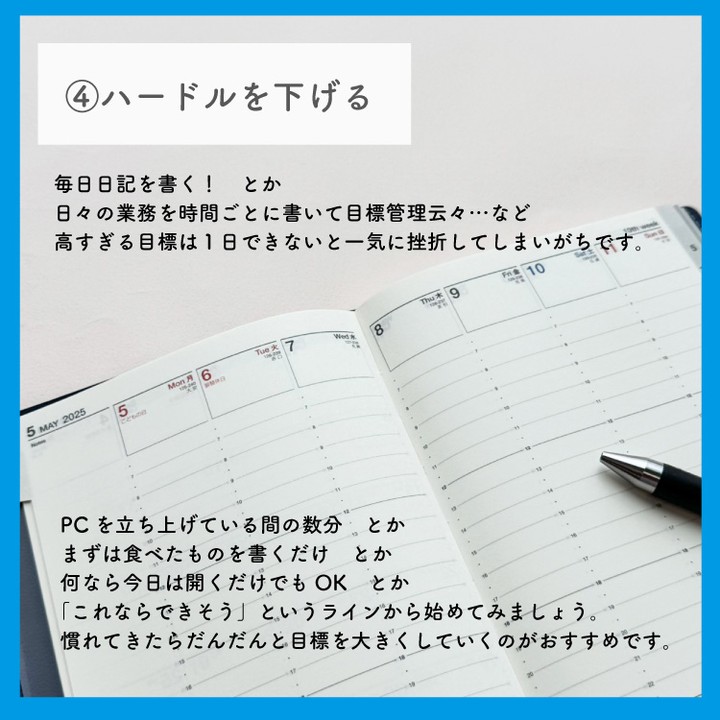 ④ハードルを下げる
毎日日記を書く！　とか
日々の業務を時間ごとに書いて目標管理云々…など
高すぎる目標は１日できないと一気に挫折してしまいがちです。
5 MAY 2025
Notes
5 Mon 月
こどもの日
6 Tue 火
振替休日
7 Wed 水
8 Thu 木
9 Fri 金
10 Sat 土
11 Sun 日
19th week
PCを立ち上げている間の数分　とか
まずは食べたものを書くだけ　とか
何なら今日は開くだけでもOK　とか
「これならできそう」というラインから始めてみましょう。
慣れてきたらだんだんと目標を大きくしていくのがおすすめです。